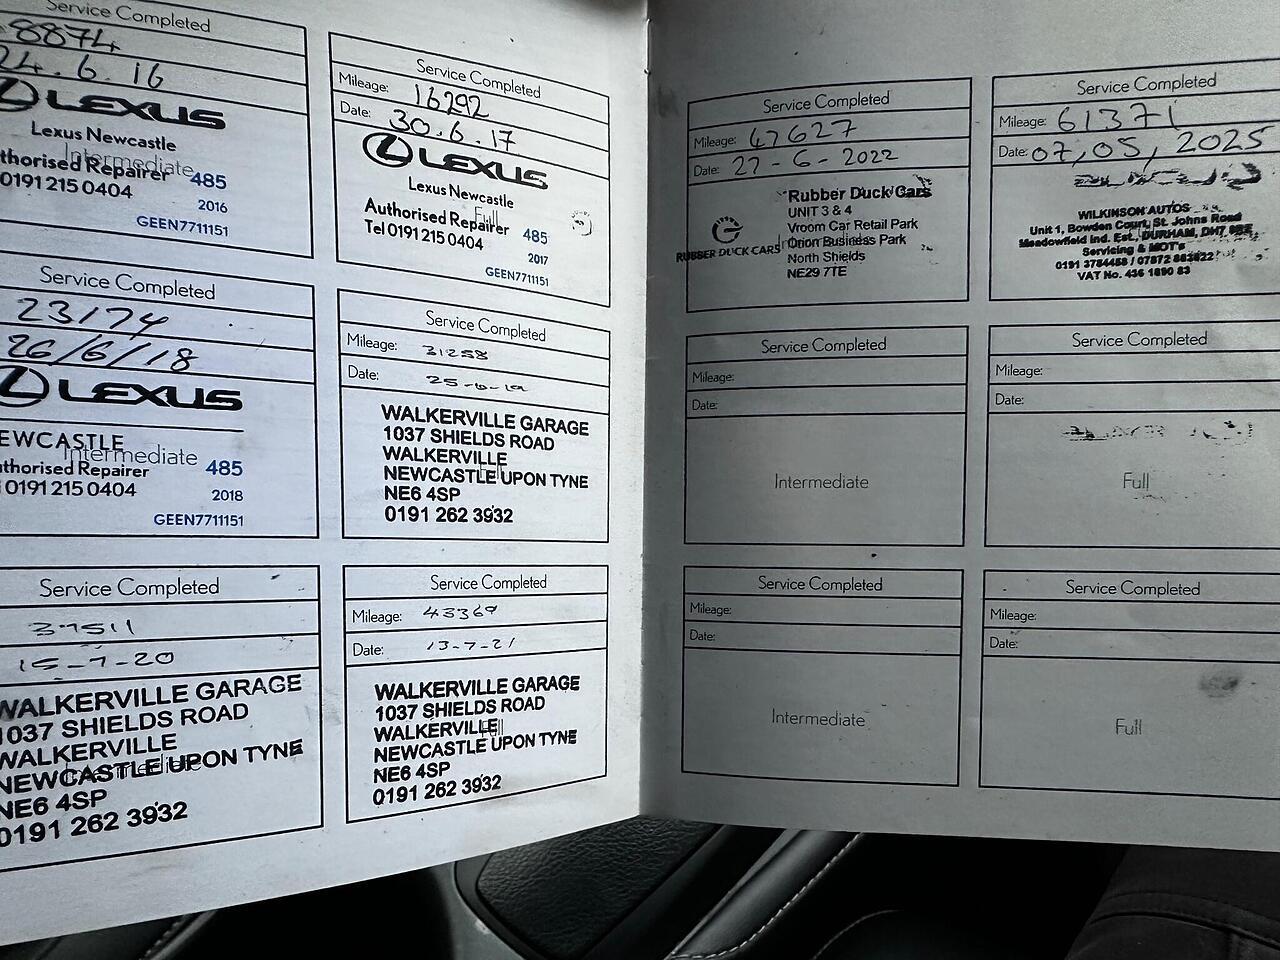 Service Completed
8874
24.6.16
LEXUS
Lexus Newcastle
Intermediate
thorised Repairer 485
0191 215 0404
2016
GEEN7711151
Service Completed
Mileage: 16292
Date: 30.6.17
LEXUS
Lexus Newcastle
Full
Authorised Repairer 485
Tel 0191 215 0404
2017
GEEN7711151
Service Completed
23174
26/6/18
LEXUS
EWCASTLE
Intermediate
thorised Repairer 485
0191 215 0404
2018
GEEN7711151
Service Completed
Mileage: 31258
Date: 25-6-19
WALKERVILLE GARAGE
1037 SHIELDS ROAD
WALKERVILLE
Full
NEWCASTLE UPON TYNE
NE6 4SP
0191 262 3932
Service Completed
37511
15-7-20
WALKERVILLE GARAGE
1037 SHIELDS ROAD
WALKERVILLE
NEWCASTLE UPON TYNE
Intermediate
NE6 4SP
0191 262 3932
Service Completed
Mileage: 43369
Date: 13-7-21
WALKERVILLE GARAGE
1037 SHIELDS ROAD
WALKERVILLE
Full
NEWCASTLE UPON TYNE
NE6 4SP
0191 262 3932
Service Completed
Mileage: 47627
Date: 27-6-2022
Rubber Duck Cars
UNIT 3 & 4
Vroom Car Retail Park
Orion Business Park
North Shields
NE29 7TE
RUBBER DUCK CARS
Intermediate
Service Completed
Mileage: 61371
Date: 07,05,2025
WILKINSON AUTOS
Unit 1, Bowden Court, St. Johns Road
Meadowfield Ind. Est., DURHAM, DH7
Servicing & MOT's
0191 3784458 / 07872
VAT No. 436 1890 83
Service Completed
Mileage:
Date:
Intermediate
Service Completed
Mileage:
Date:
Full
Service Completed
Mileage:
Date:
Intermediate
Service Completed
Mileage:
Date:
Full